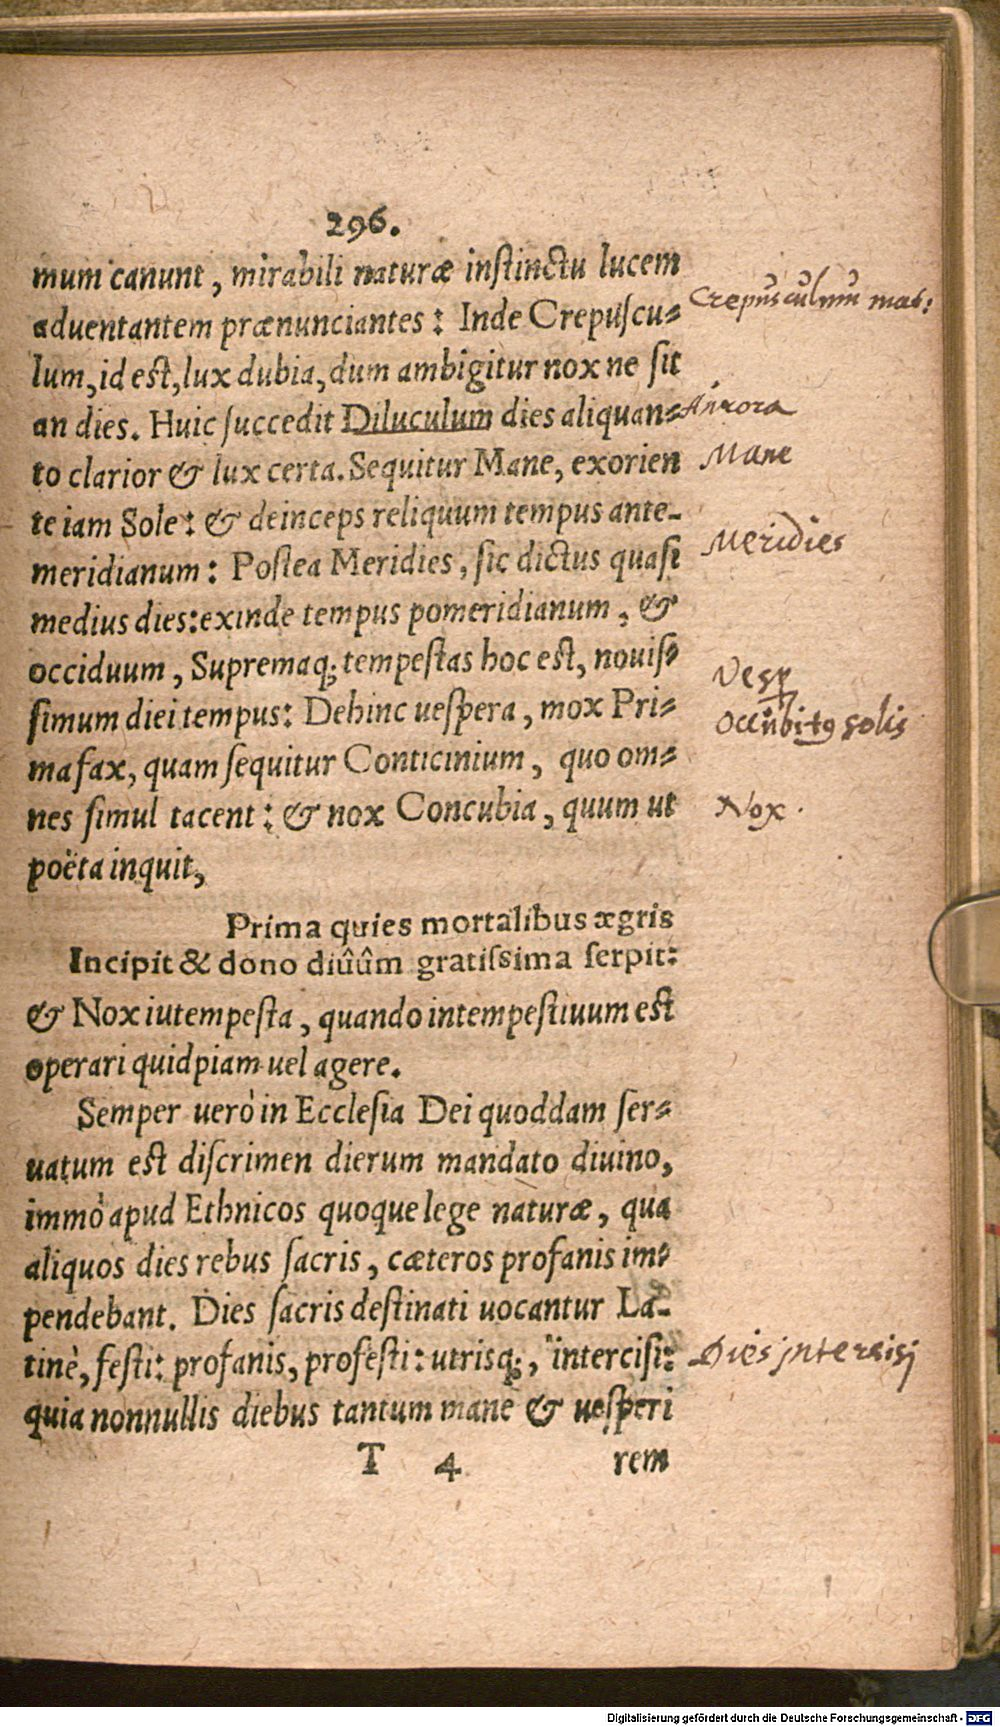 296.
mum canunt, mirabili naturæ instinctu lucem
aduentantem prænunciantes: Inde Crepuscu-
Crepusculum mat:
lum, id est, lux dubia, dum ambigitur nox ne sit
an dies. Huic succedit Diluculum dies aliquan-
Aurora
to clarior & lux certa. Sequitur Mane, exorien
Mane
te iam Sole: & deinceps reliquum tempus ante-
meridianum: Postea Meridies, sic dictus quasi
Meridies
medius dies: exinde tempus pomeridianum, &
occiduum, Supremaq; tempestas hoc est, nouis-
Vesp
simum diei tempus: Dehinc uespera, mox Pri-
Occubitꝰ solis
ma fax, quam sequitur Conticinium, quo om-
nes simul tacent: & nox Concubia, quum ut
Nox.
poëta inquit,
Prima quies mortalibus ægris
Incipit & dono diûûm gratissima serpit:
& Nox iutempesta, quando intempestiuum est
operari quidpiam uel agere.
Semper uerò in Ecclesia Dei quoddam ser-
uatum est discrimen dierum mandato diuino,
immò apud Ethnicos quoque lege naturæ, qua
aliquos dies rebus sacris, cæteros profanis im-
pendebant. Dies sacris destinati uocantur La-
tinè, festi: profanis, profesti: utrisq;, intercisi:
Dies intercisi
quia nonnullis diebus tantum mane & uesperi
T 4 rem
Digitalisierung gefördert durch die Deutsche Forschungsgemeinschaft - DFG